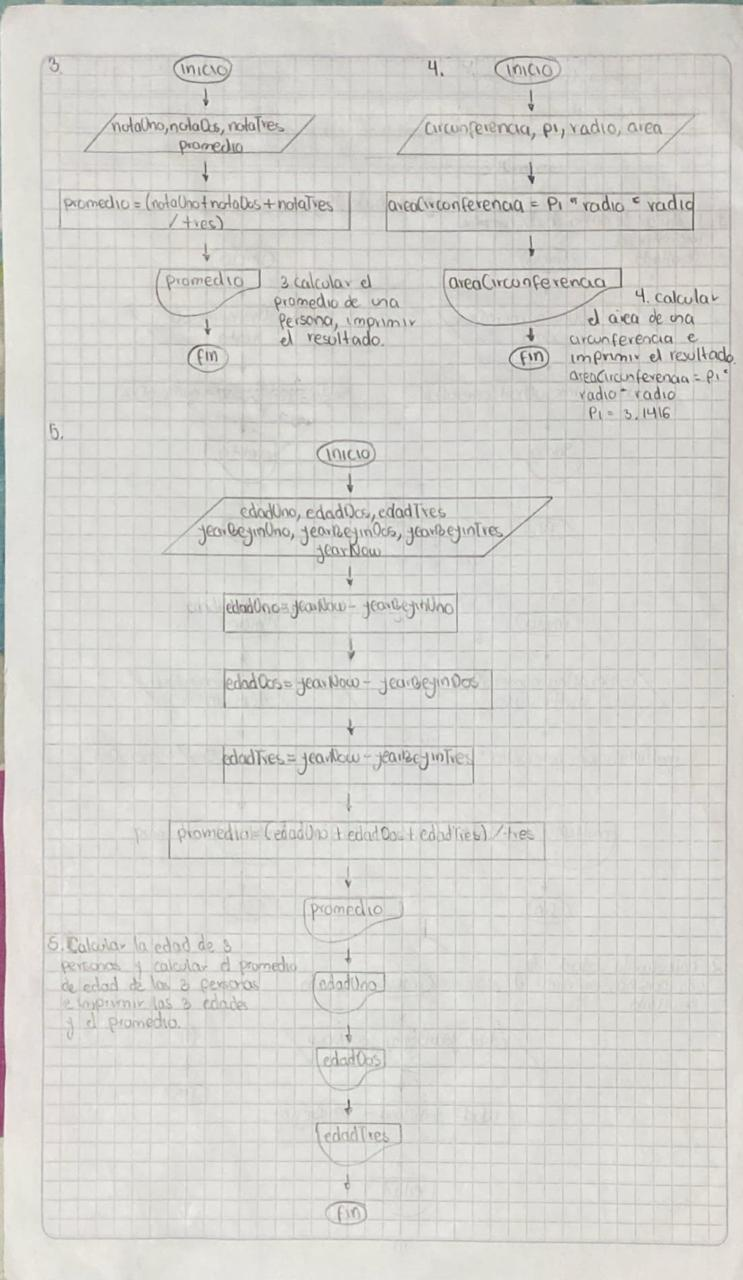 3.
inicio
notaUno, notaDos, notaTres
promedio
promedio = (notaUno + notaDos + notaTres
/ tres)
promedio
3. calcular el
promedio de una
persona, imprimir
el resultado.
fin
4.
inicio
circunferencia, pi, radio, area
areaCirconferencia = Pi * radio * radio
areaCirconferencia
4. calcular
el area de una
circunferencia e
imprimir el resultado.
areaCircunferencia = Pi *
radio * radio
Pi = 3.1416
fin
5.
inicio
edadUno, edadDos, edadTres
yearBeginUno, yearBeginDos, yearBeginTres
yearNow
edadUno = yearNow - yearBeginUno
edadDos = yearNow - yearBeginDos
edadTres = yearNow - yearBeginTres
promedio = (edadUno + edadDos + edadTres) / tres
promedio
5. Calcular la edad de 3
personas y calcular el promedio
de edad de las 3 personas
e imprimir las 3 edades
y el promedio.
edadUno
edadDos
edadTres
fin